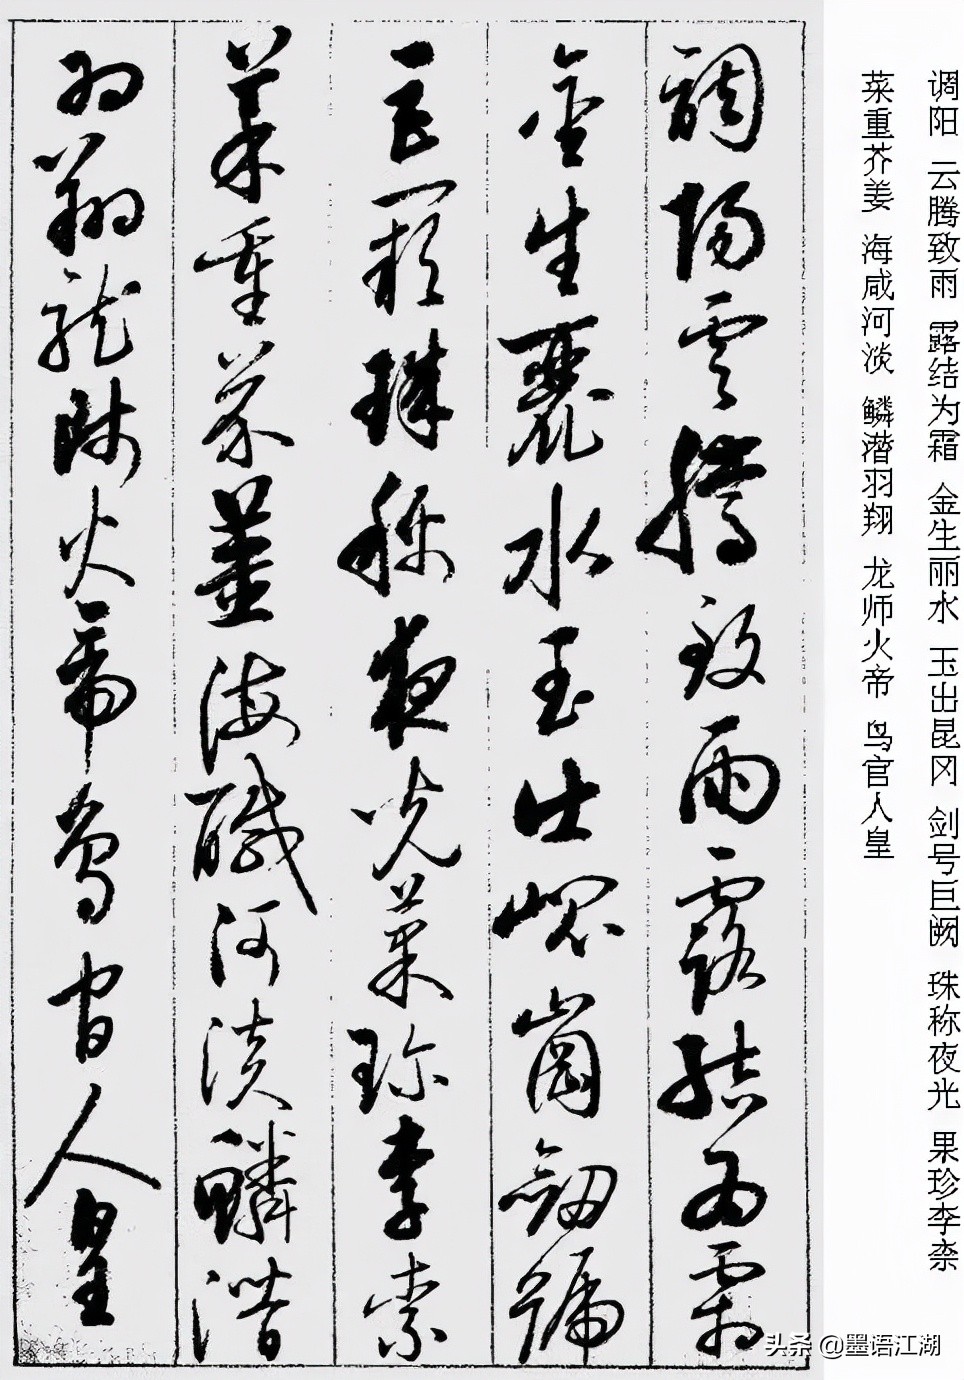 调阳 云腾致雨 露结为霜 金生丽水 玉出昆冈 剑号巨阙 珠称夜光 果珍李柰
菜重芥姜 海咸河淡 鳞潜羽翔 龙师火帝 鸟官人皇
調陽雲騰致雨露結為霜
金生麗水玉出崐崗劒號
巨闕珠稱夜光菓珍李柰
菜重芥薑海鹹河淡鱗潛
羽翔龍師火帝鳥官人皇
头条 @墨语江湖